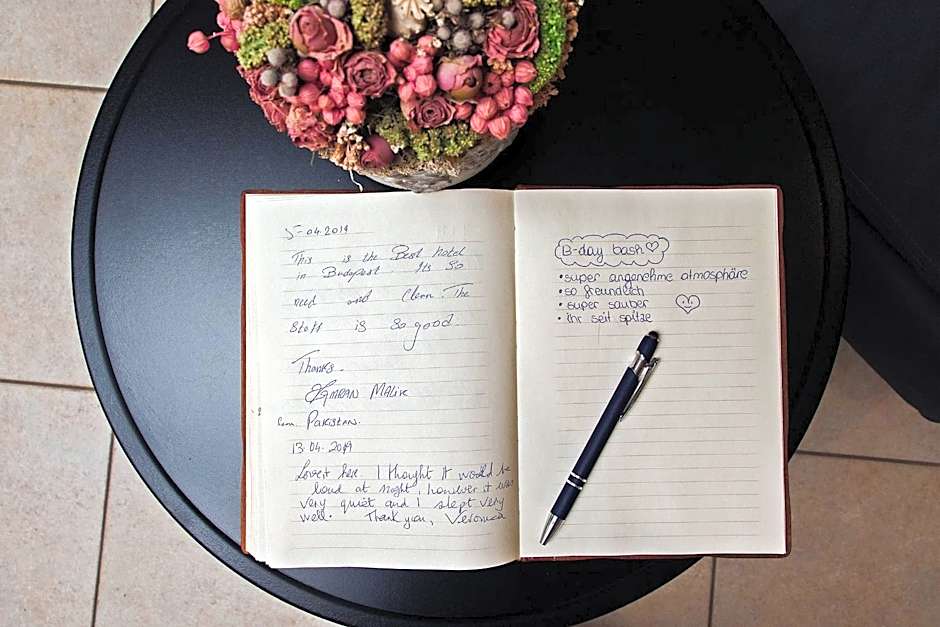 5-04.2019
This is the Best hotel
in Budapest. Its So
need and Clean. The
Staff is so good.
Thanks.
MALIK
PAKISTAN.
13.04.2019
Lovely here. I thought it would be
loud at night, however it was
very quiet and I slept very
well. Thank you, Veronica
B-day bash
• super angenehme atmosphäre
• so freundlich
• super sauber
• ihr seit spitze